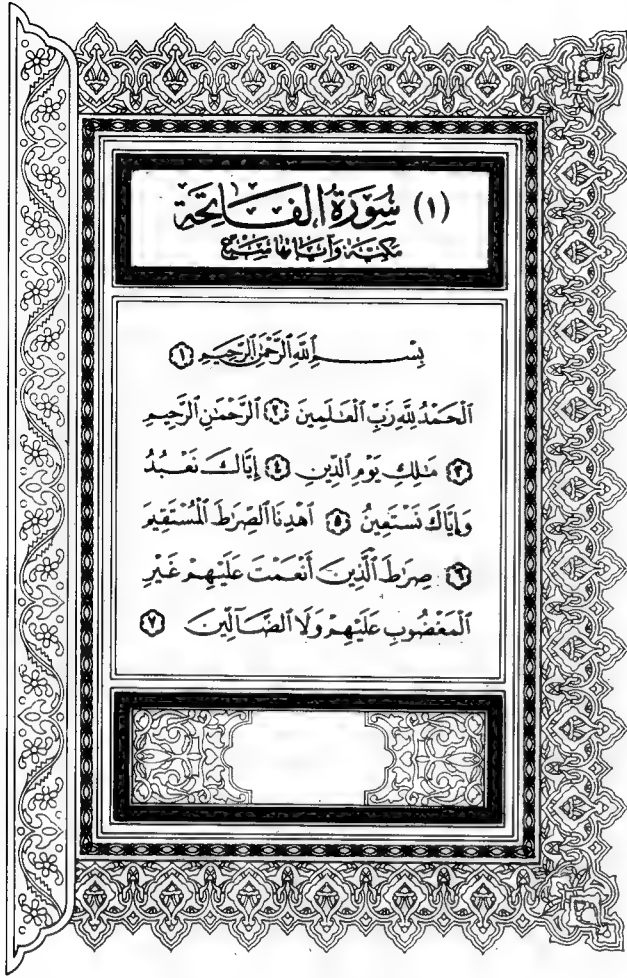 (١) سُورَةُ الفَاتِحَة
مكيّة وآياتها سَبع
بِسْمِ ٱللَّهِ ٱلرَّحْمَٰنِ ٱلرَّحِيمِ ١
ٱلْحَمْدُ لِلَّهِ رَبِّ ٱلْعَٰلَمِينَ ٢ ٱلرَّحْمَٰنِ ٱلرَّحِيمِ
٣ مَٰلِكِ يَوْمِ ٱلدِّينِ ٤ إِيَّاكَ نَعْبُدُ
وَإِيَّاكَ نَسْتَعِينُ ٥ ٱهْدِنَا ٱلصِّرَٰطَ ٱلْمُسْتَقِيمَ
٦ صِرَٰطَ ٱلَّذِينَ أَنْعَمْتَ عَلَيْهِمْ غَيْرِ
ٱلْمَغْضُوبِ عَلَيْهِمْ وَلَا ٱلضَّآلِّينَ ٧